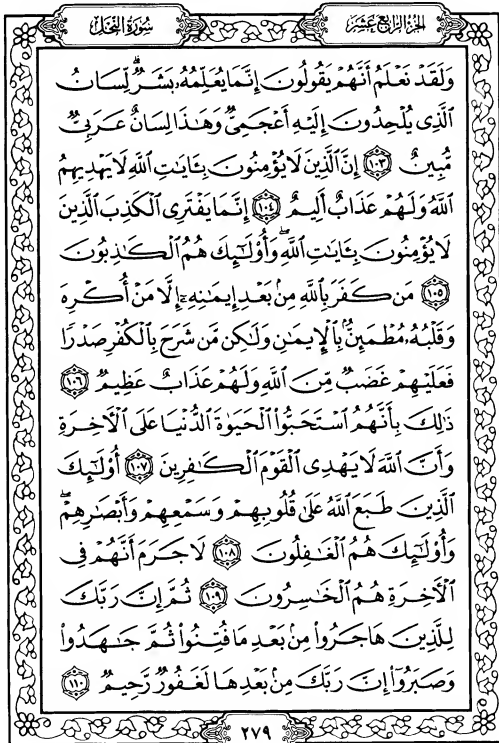 سُورَةُ النَّحْلِ
الجُزْءُ الرَّابِعُ عَشَرَ
وَلَقَدْ نَعْلَمُ أَنَّهُمْ يَقُولُونَ إِنَّمَا يُعَلِّمُهُۥ بَشَرٌۗ لِّسَانُ
ٱلَّذِى يُلْحِدُونَ إِلَيْهِ أَعْجَمِىٌّ وَهَٰذَا لِسَانٌ عَرَبِىٌّ
مُّبِينٌ ١٠٣ إِنَّ ٱلَّذِينَ لَا يُؤْمِنُونَ بِـَٔايَٰتِ ٱللَّهِ لَا يَهْدِيهِمُ
ٱللَّهُ وَلَهُمْ عَذَابٌ أَلِيمٌ ١٠٤ إِنَّمَا يَفْتَرِى ٱلْكَذِبَ ٱلَّذِينَ
لَا يُؤْمِنُونَ بِـَٔايَٰتِ ٱللَّهِۖ وَأُو۟لَٰٓئِكَ هُمُ ٱلْكَٰذِبُونَ
١٠٥ مَن كَفَرَ بِٱللَّهِ مِنۢ بَعْدِ إِيمَٰنِهِۦٓ إِلَّا مَنْ أُكْرِهَ
وَقَلْبُهُۥ مُطْمَئِنٌّۢ بِٱلْإِيمَٰنِ وَلَٰكِن مَّن شَرَحَ بِٱلْكُفْرِ صَدْرًا
فَعَلَيْهِمْ غَضَبٌ مِّنَ ٱللَّهِ وَلَهُمْ عَذَابٌ عَظِيمٌ ١٠٦
ذَٰلِكَ بِأَنَّهُمُ ٱسْتَحَبُّوا۟ ٱلْحَيَوٰةَ ٱلدُّنْيَا عَلَى ٱلْءَاخِرَةِ
وَأَنَّ ٱللَّهَ لَا يَهْدِى ٱلْقَوْمَ ٱلْكَٰفِرِينَ ١٠٧ أُو۟لَٰٓئِكَ
ٱلَّذِينَ طَبَعَ ٱللَّهُ عَلَىٰ قُلُوبِهِمْ وَسَمْعِهِمْ وَأَبْصَٰرِهِمْۖ
وَأُو۟لَٰٓئِكَ هُمُ ٱلْغَٰفِلُونَ ١٠٨ لَا جَرَمَ أَنَّهُمْ فِى
ٱلْءَاخِرَةِ هُمُ ٱلْخَٰسِرُونَ ١٠٩ ثُمَّ إِنَّ رَبَّكَ
لِلَّذِينَ هَاجَرُوا۟ مِنۢ بَعْدِ مَا فُتِنُوا۟ ثُمَّ جَٰهَدُوا۟
وَصَبَرُوٓا۟ إِنَّ رَبَّكَ مِنۢ بَعْدِهَا لَغَفُورٌ رَّحِيمٌ ١١٠
٢٧٩